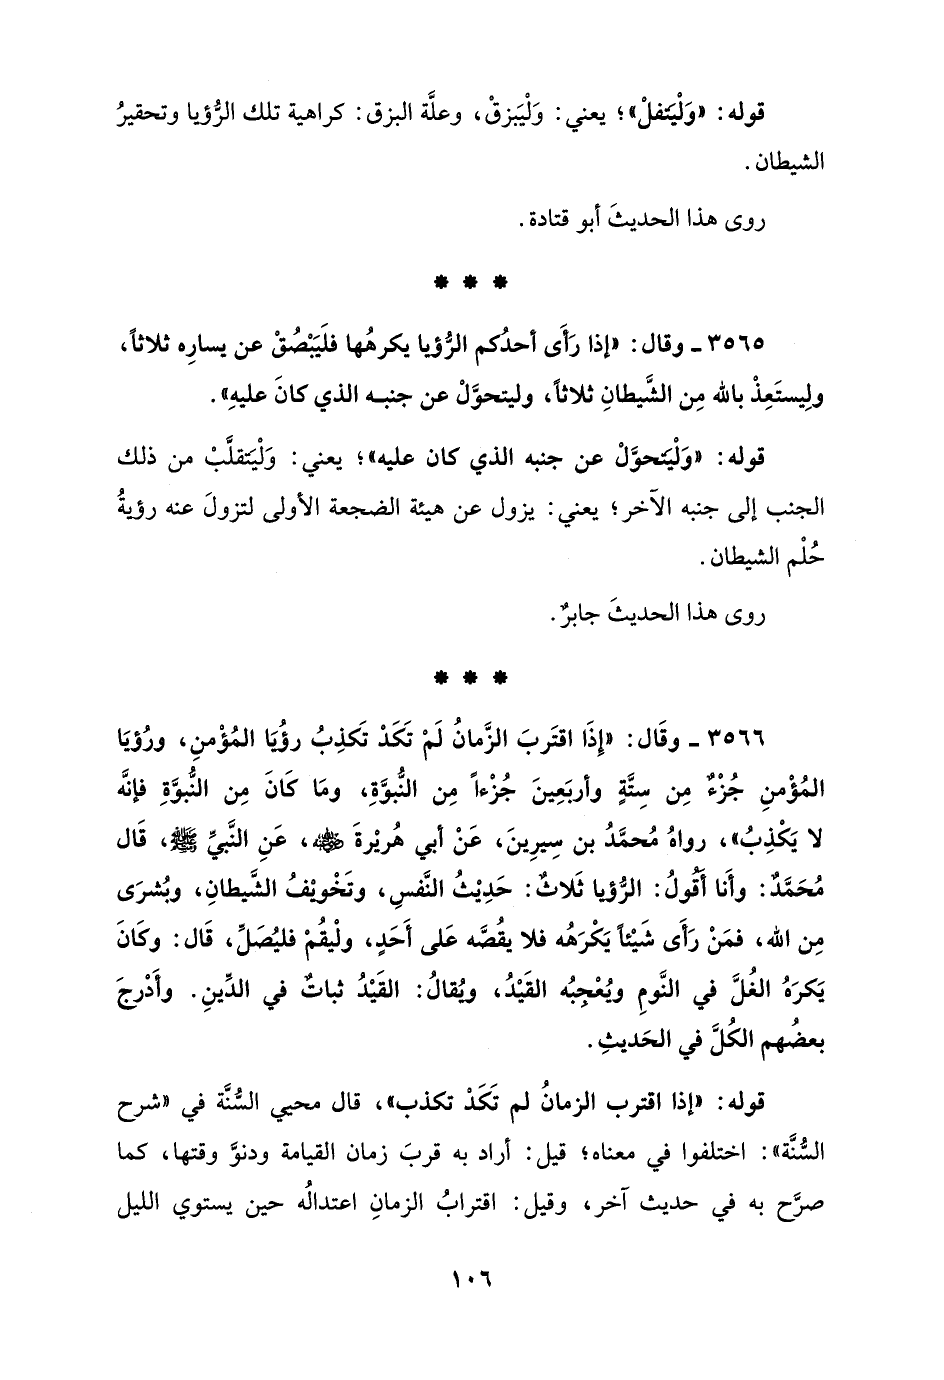 قوله: «وَلْيَتفلْ»؛ يعني: وَلْيَبزقْ، وعلَّة البزق: كراهية تلك الرُّؤيا وتحقيرُ
الشيطان.
روى هذا الحديثَ أبو قتادة.
* * *
٣٥٦٥ ـ وقال: «إذا رَأَى أحدُكم الرُّؤيا يكرهُها فلَيَبْصُقْ عن يسارِه ثلاثاً،
ولِيستَعِذْ بالله مِن الشَّيطانِ ثلاثاً، وليتحوَّلْ عن جنبـه الذي كانَ عليهِ».
قوله: «وَلْيَتحوَّلْ عن جنبه الذي كان عليه»؛ يعني: وَلْيَتقلَّبْ من ذلك
الجنب إلى جنبه الآخر؛ يعني: يزول عن هيئة الضجعة الأولى لتزولَ عنه رؤيةُ
حُلْم الشيطان.
روى هذا الحديثَ جابرٌ.
* * *
٣٥٦٦ ـ وقَال: «إِذَا اقتَربَ الزَّمانُ لَمْ تَكَدْ تَكذِبُ رؤُيَا المُؤْمنِ، ورُؤيَا
المُؤْمنِ جُزْءٌ مِن سِتَّةٍ وأربَعِينَ جُزْءاً مِن النُّبوَّةِ، ومَا كَانَ مِن النُّبوَّةِ فإنَّه
لا يَكْذِبُ»، رواهُ مُحمَّدُ بن سِيرِينَ، عَنْ أبي هُريْرةَ ﵁، عَنِ النَّبيِّ ﷺ، قَال
مُحَمَّدٌ: وأَنا أَقُولُ: الرُّؤيا ثَلاثٌ: حَدِيْثُ النَّفسِ، وتَخْويْفُ الشَّيطانِ، وبُشرَى
مِن الله، فمَنْ رَأَى شَيْئاً يَكْرَهُه فلا يقُصَّه عَلى أَحَدٍ، ولْيقُمْ فليُصَلِّ، قَال: وكَانَ
يَكرَهُ الغُلَّ في النَّومِ ويُعْجِبُه القَيْدُ، ويُقالُ: القَيْدُ ثباتٌ في الدِّينِ. وأَدْرجَ
بعضُهم الكُلَّ في الحَديثِ.
قوله: «إذا اقترب الزمانُ لم تَكَدْ تكذب»، قال محيي السُّنَّة في «شرح
السُّنَّة»: اختلفوا في معناه؛ قيل: أراد به قربَ زمان القيامة ودنوَّ وقتها، كما
صرَّح به في حديث آخر، وقيل: اقترابُ الزمانِ اعتدالُه حين يستوي الليل
١٠٦